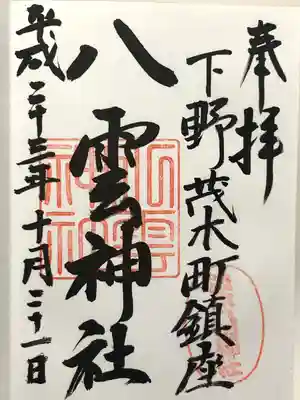 奉拝
下野茂木町鎮座
八雲神社
平成二十三年十月二十一日